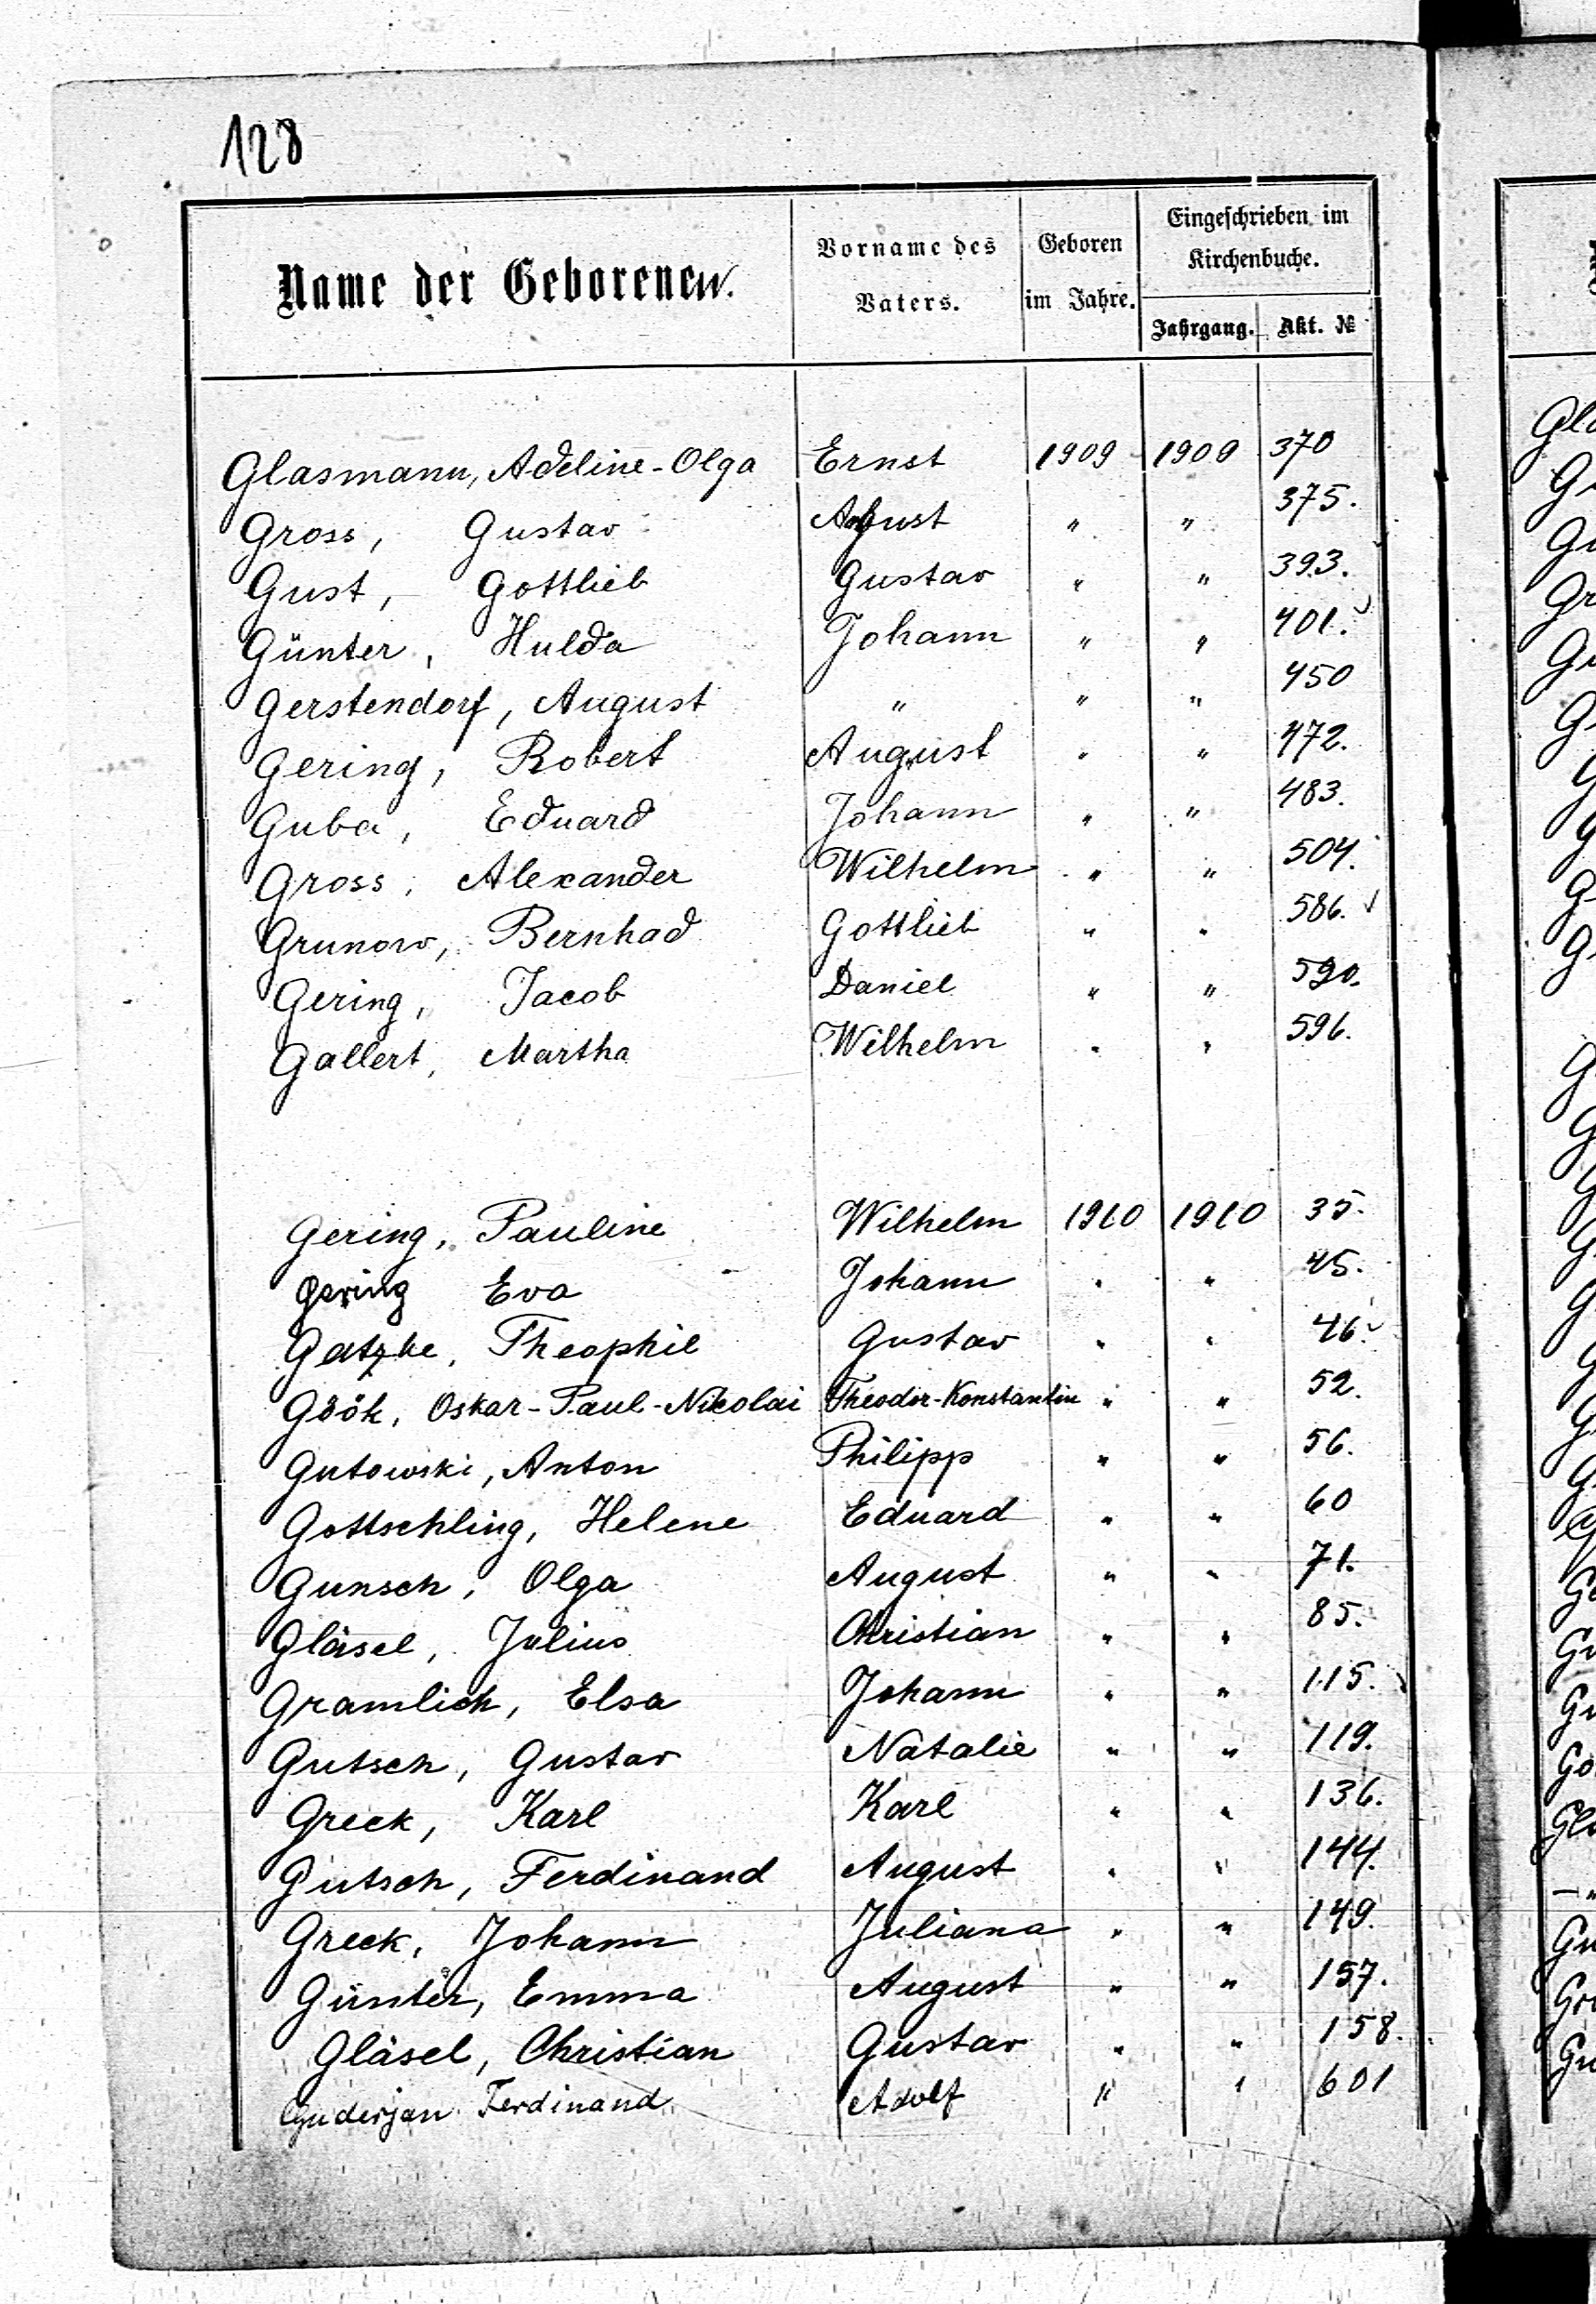 128
Name der Geborenen.
Vorname des Vaters.
Geboren im Jahre.
Eingeschrieben im Kirchenbuche.
Jahrgang. Akt. №
Glasmann, Adeline-Olga Ernst 1909 1909 370
Gross, Gustav August " " 375.
Gust, Gottlieb Gustav " " 393.
Günter, Hulda Johann " " 401.
Gerstendorf, August " " " 450
Gering, Robert August " " 472.
Guba, Eduard Johann " " 483.
Gross, Alexander Wilhelm " " 504.
Grunow, Bernhad Gottlieb " " 586.
Gering, Jacob Daniel " " 590.
Gallert, Martha Wilhelm " " 596.
Gering, Pauline Wilhelm 1910 1910 35.
Gering Eva Johann " " 45.
Gatzke, Theophil Gustav " " 46.
Göök, Oskar-Paul-Nikolai Theodor-Konstantin " " 52.
Gutowski, Anton Philipp " " 56.
Gottschling, Helene Eduard " " 60
Gunsch, Olga August " " 71.
Gläsel, Julius Christian " " 85.
Gramlich, Elsa Johann " " 115.
Gutsch, Gustav Natalie " " 119.
Greck, Karl Karl " " 136.
Gutsch, Ferdinand August " " 144.
Greck, Johann Juliana " " 149.
Günter, Emma August " " 157.
Gläsel, Christian Gustav " " 158.
Guderjan Ferdinand Adolf " " 601